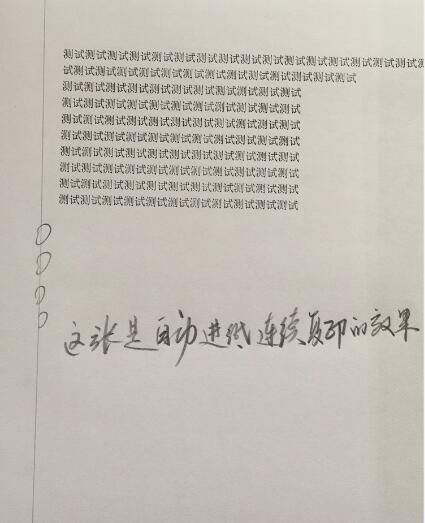 测试测试测试测试测试测试测试测试测试测试测试测试测试测试测试测试测
试测试测试测试测试测试测试测试测试测试测试测试测试测试
测试测试测试测试测试测试测试测试测试测试测试
测试测试测试测试测试测试测试测试测试测试测试
测试测试测试测试测试测试测试测试测试测试测试
测试测试测试测试测试测试测试测试测试测试测试
测试测试测试测试测试测试测试测试测试测试测试
测试测试测试测试测试测试测试测试测试测试测试
测试测试测试测试测试测试测试测试测试测试测试
测试测试测试测试测试测试测试测试测试测试测试
这张是自动进纸连续复印的效果